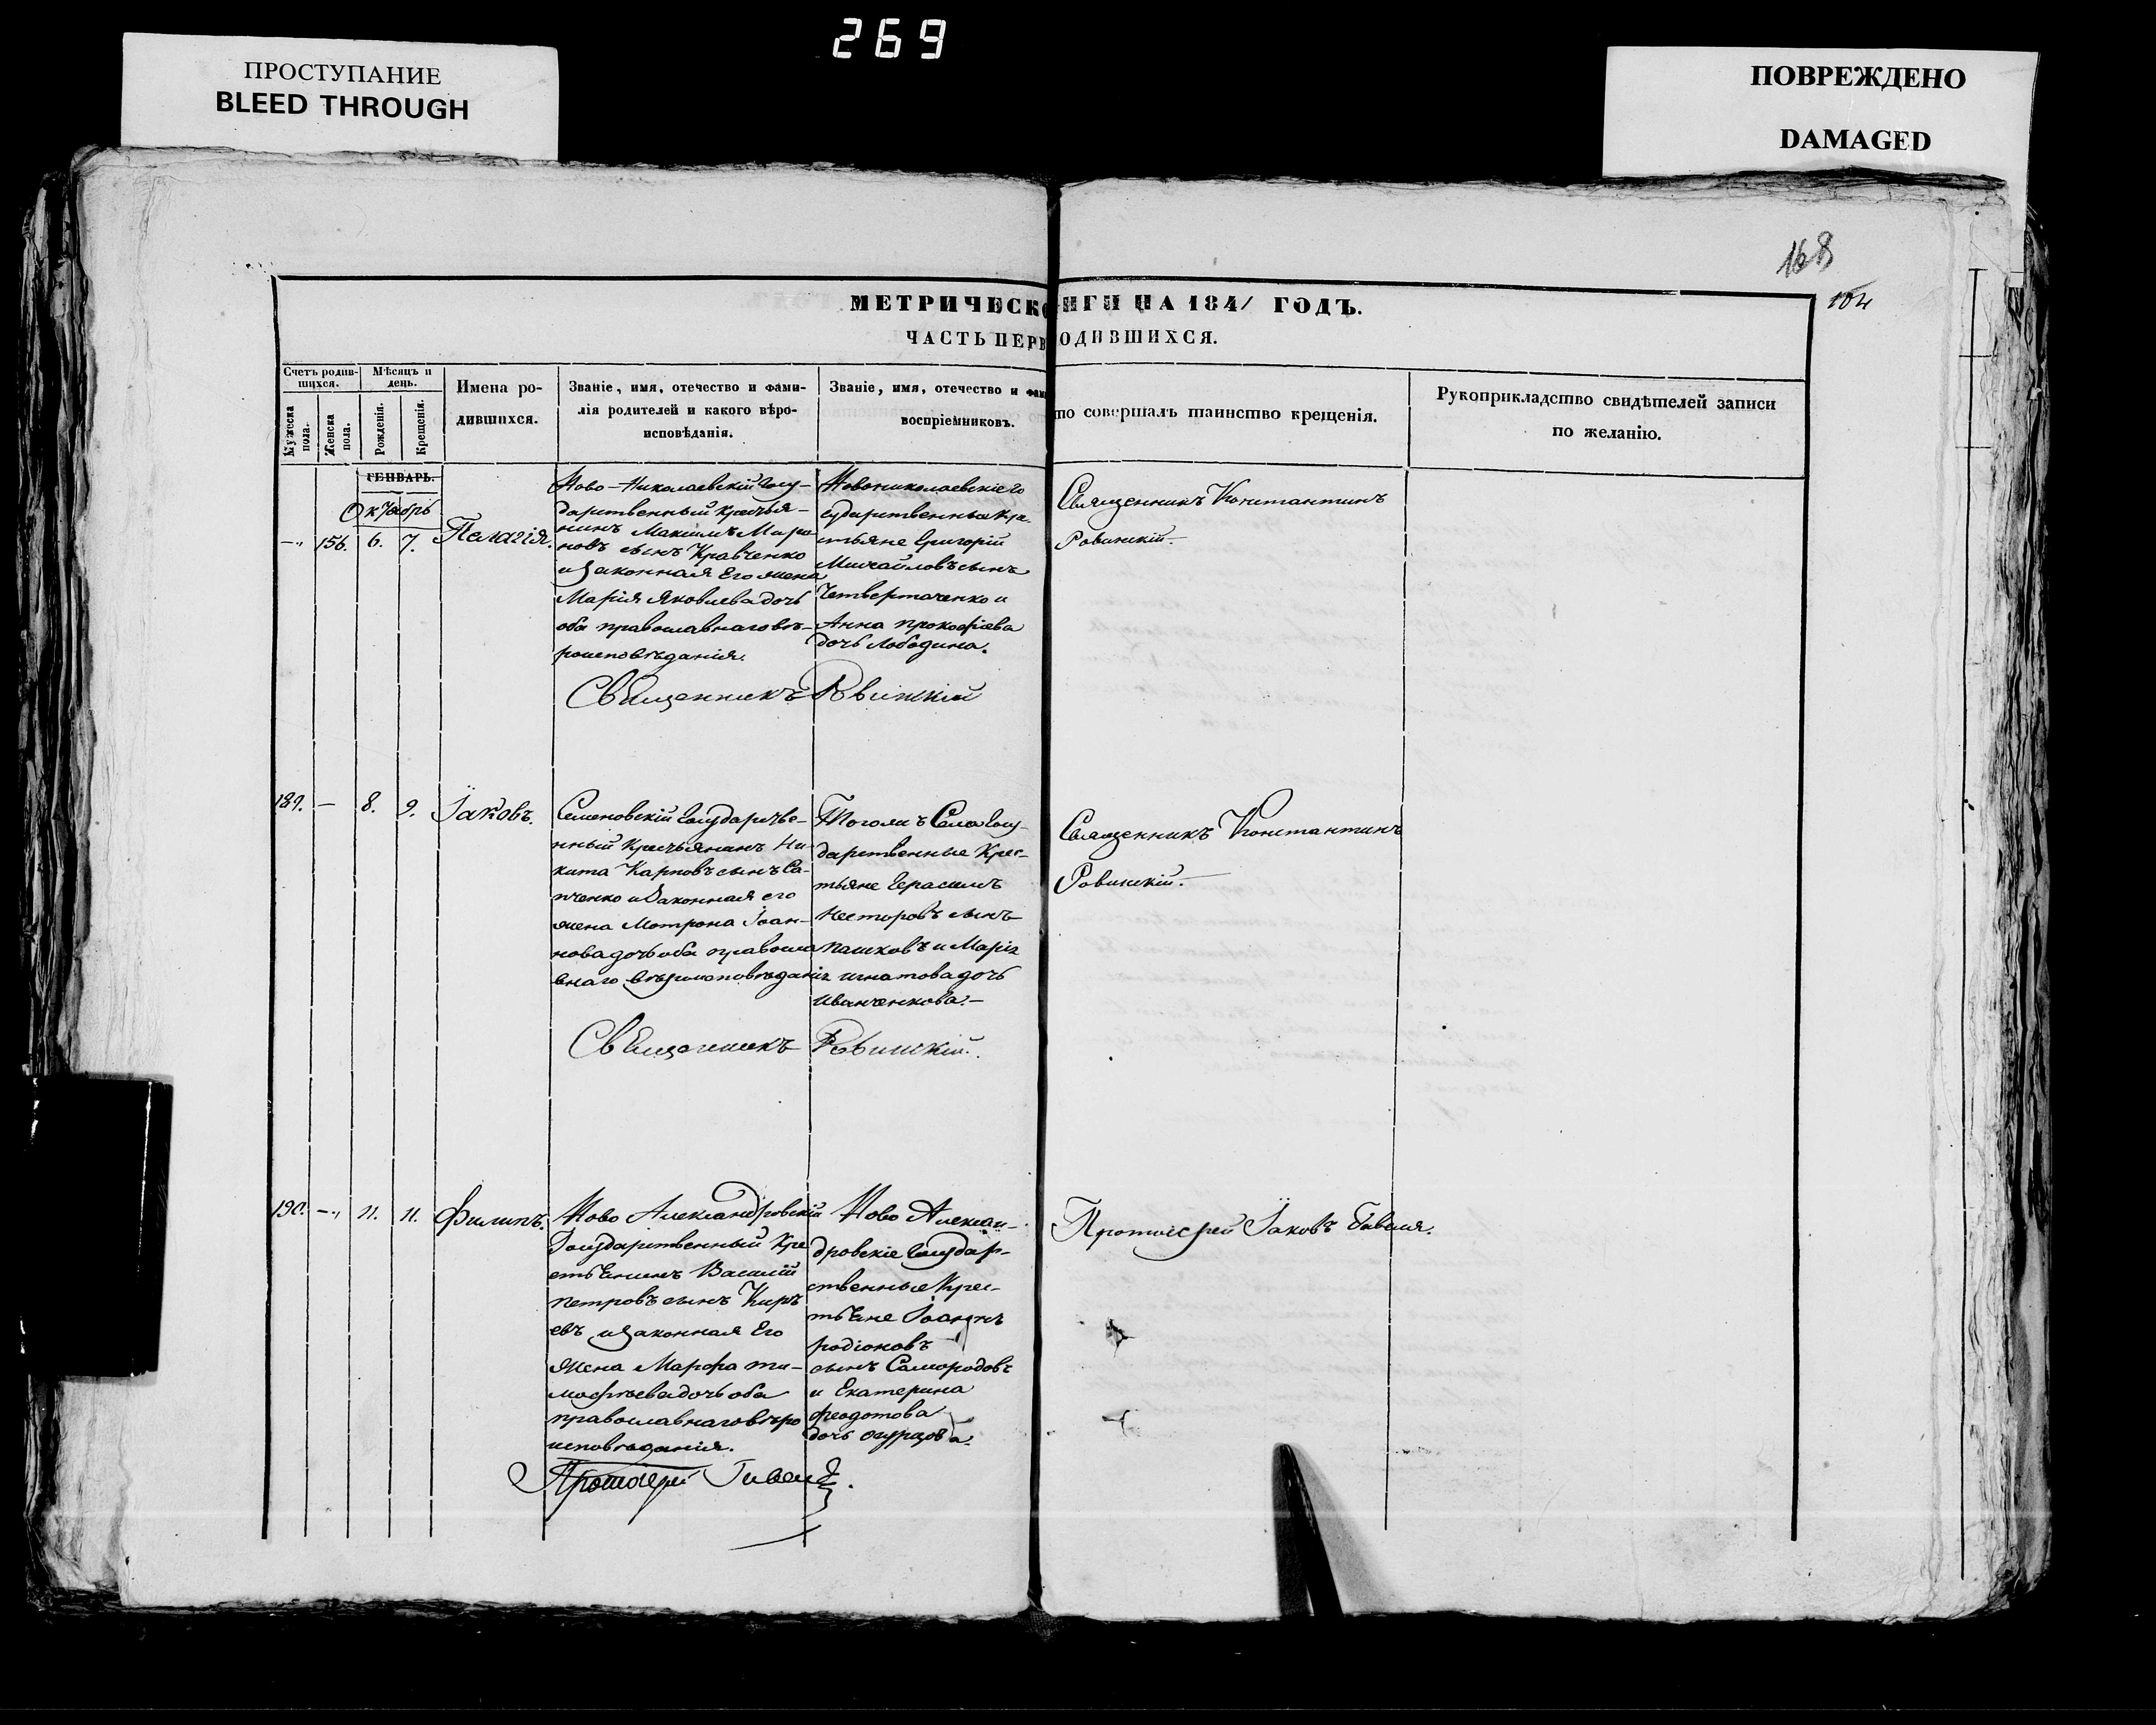 269
ПРОСТУПАНИЕ
BLEED THROUGH
ПОВРЕЖДЕНО
DAMAGED
168
104
МЕТРИЧЕСКО НГИ НА 1841 ГОДЪ.
ЧАСТЬ ПЕРВ ОДИВШИХСЯ.
Счетъ родив-
шихся.
Мужеска
пола.
Женска
пола.
Мѣсяцъ и
день.
Рожденія.
Крещенія.
Имена ро-
дившихся.
Званіе, имя, отечество и фами-
лія родителей и какого вѣро-
исповѣданія.
Званіе, имя, отечество и фам
воспріемниковъ.
то совершалъ таинство крещенія.
Рукоприкладство свидѣтелей записи
по желанію.
ГЕНВАРЬ.
Октябрь
156. 6. 7. Пелагія.
Ново-Николаевскій Госу-
дарственный Кресьтья-
нинъ Максимъ Миро-
новъ сынъ Кравченко
и Законная Его жена
Марія Яковлева дочь
оба православнаго вѣ-
роисповѣданія.
Новониколаевскіе Го
сударственные Кре-
стьяне Григорій
Михайловъ сынъ
Четверточенко и
Анна Прокофіева
дочь Лободина.
Священникъ Константинъ
Ровинскій.
Священникъ Ровинскій
189. — 8. 9. Іаковъ.
Семеновскій Государстве-
нный Крестьянинъ Ни-
кита Карповъ сынъ Са-
пченко и Законная его
жена Мотрона Іоан-
нова дочь оба правосла
внаго вѣроисповѣданія
Тогожъ Села Госу-
дарственные Крес-
тьяне Герасимъ
Несторовъ сынъ
Пашковъ и Марія
игнатова дочь
Иванченкова.—
Священникъ Константинъ
Ровинскій.
Священникъ Ровинскій.
190. — 11. 11. Филипъ.
Ново Александровскій
Государственный Кре
стьянинъ Василій
Петровъ сынъ Кирѣ
евъ и Законная Его
Жена Марфа ти-
мофѣева дочь оба
православнаго вѣро
исповѣданія.
Ново Алексан-
дровскіе Государ-
ственные Крес-
тьяне Іоаннъ
родіоновъ
сынъ Самородовъ
и Екатерина
феодотова
дочь
Протоіерей Іаковъ
Протоіерей